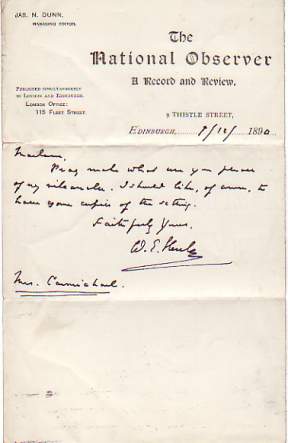 JAS. N. DUNN,
MANAGING EDITOR.
The
National Observer
A Record and Review.
PUBLISHED SIMULTANEOUSLY
IN LONDON AND EDINBURGH.
LONDON OFFICE:
115 FLEET STREET.
9 THISTLE STREET,
EDINBURGH, 9/12/ 1890
Madam,
Pray make what use you please
of my villanelle. I should like, of course, to
have some copies of the setting.
Faithfully Yours,
W. E. Henley
Mrs. Carmichael.